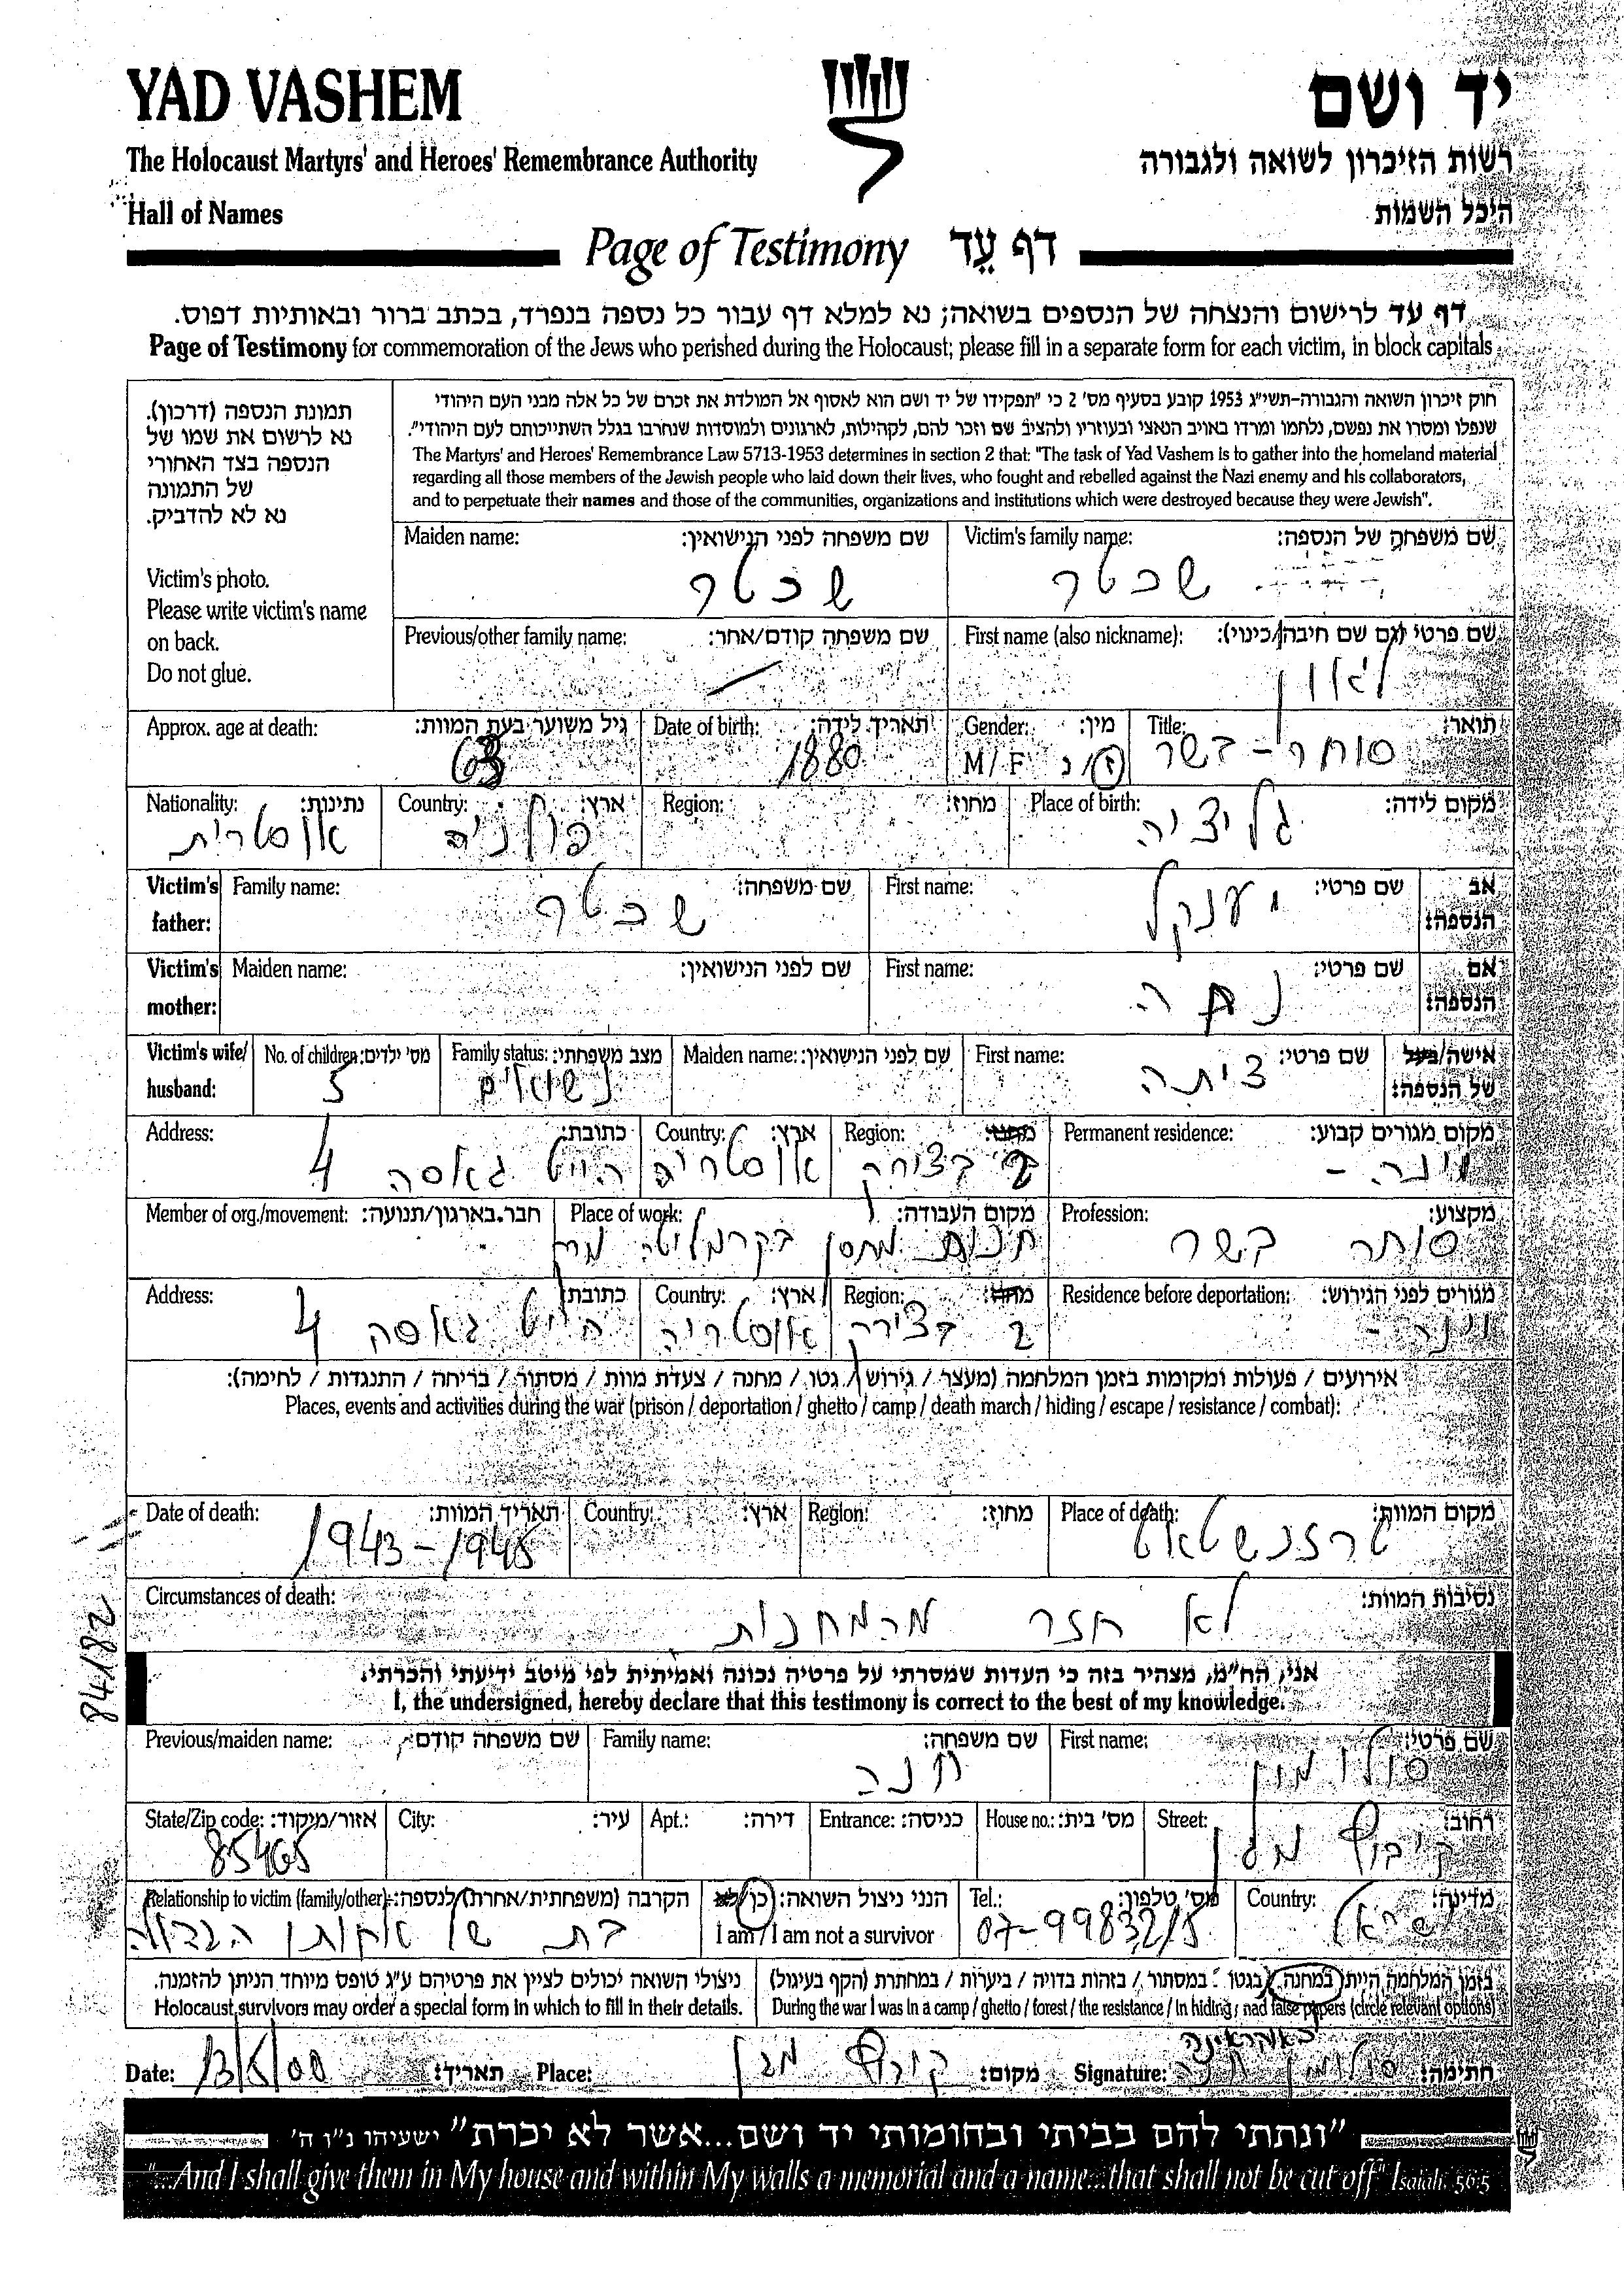 YAD VASHEM
יד ושם
The Holocaust Martyrs' and Heroes' Remembrance Authority
רשות הזיכרון לשואה ולגבורה
Hall of Names
היכל השמות
Page of Testimony דף עֵד
דף עד לרישום והנצחה של הנספים בשואה; נא למלא דף עבור כל נספה בנפרד, בכתב ברור ובאותיות דפוס.
Page of Testimony for commemoration of the Jews who perished during the Holocaust; please fill in a separate form for each victim, in block capitals
תמונת הנספה (דרכון).
נא לרשום את שמו של
הנספה בצד האחורי
של התמונה
נא לא להדביק.
Victim's photo.
Please write victim's name
on back.
Do not glue.
חוק זיכרון השואה והגבורה-תשי"ג 1953 קובע בסעיף מס' 2 כי "תפקידו של יד ושם הוא לאסוף אל המולדת את זכרם של כל אלה מבני העם היהודי
שנפלו ומסרו את נפשם, נלחמו ומרדו באויב הנאצי ובעוזריו ולהציב שם וזכר להם, לקהילות, לארגונים ולמוסדות שנחרבו בגלל השתייכותם לעם היהודי".
The Martyrs' and Heroes' Remembrance Law 5713-1953 determines in section 2 that: "The task of Yad Vashem is to gather into the homeland material
regarding all those members of the Jewish people who laid down their lives, who fought and rebelled against the Nazi enemy and his collaborators,
and to perpetuate their names and those of the communities, organizations and institutions which were destroyed because they were Jewish".
Victim's family name: שם משפחה של הנספה:
שכטר
Maiden name: שם משפחה לפני הנישואין:
שכטר
First name (also nickname): שם פרטי (גם שם חיבה/כינוי):
לאון
Previous/other family name: שם משפחה קודם/אחר:
Title: תואר:
סוחר - בשר
Gender: מין:
M / F ז/נ
Date of birth: תאריך לידה:
1880
Approx. age at death: גיל משוער בעת המוות:
63
Place of birth: מקום לידה:
גליציה
Region: מחוז:
Country: ארץ:
פולניה
Nationality: נתינות:
אוסטרית
אב הנספה:
First name: שם פרטי:
יענקל
Family name: שם משפחה:
שכטר
Victim's father:
אם הנספה:
First name: שם פרטי:
Maiden name: שם לפני הנישואין:
Victim's mother:
אישה/בעל של הנספה:
First name: שם פרטי:
ציתה
Maiden name: שם לפני הנישואין:
Family status: מצב משפחתי:
נשואים
No. of children: מס' ילדים:
5
Victim's wife/ husband:
Permanent residence: מקום מגורים קבוע:
וינה -
Region: מחוז:
2 בצירק
Country: ארץ:
אוסטריה
Address: כתובת:
הייט גאסה 4
Profession: מקצוע:
סוחר בשר
Place of work: מקום העבודה:
מחסן בקרמליטה
Member of org./movement: חבר בארגון/תנועה:
Residence before deportation: מגורים לפני הגירוש:
וינה -
Region: מחוז:
2 בצירק
Country: ארץ:
אוסטריה
Address: כתובת:
הייט גאסה 4
אירועים / פעולות ומקומות בזמן המלחמה (מעצר / גירוש / גטו / מחנה / צעדת מוות / מסתור / בריחה / התנגדות / לחימה):
Places, events and activities during the war (prison / deportation / ghetto / camp / death march / hiding / escape / resistance / combat):
Place of death: מקום המוות:
טרזנשטאט
Region: מחוז:
Country: ארץ:
Date of death: תאריך המוות:
1943-1945
Circumstances of death: נסיבות המוות:
לא חזר מהמחנות
84/182
אני, הח"מ, מצהיר בזה כי העדות שמסרתי על פרטיה נכונה ואמיתית לפי מיטב ידיעתי והכרתי.
I, the undersigned, hereby declare that this testimony is correct to the best of my knowledge.
First name: שם פרטי:
סולומון
Family name: שם משפחה:
חנה
Previous/maiden name: שם משפחה קודם:
Street: רחוב:
קיבוץ מגן
House no.: מס' בית:
Entrance: כניסה:
Apt.: דירה:
City: עיר:
State/Zip code: אזור/מיקוד:
85465
Country: מדינה:
ישראל
Tel.: מס' טלפון:
07-9983215
הנני ניצול השואה: כן / לא
I am / I am not a survivor
Relationship to victim (family/other): הקרבה (משפחתית/אחרת) לנספה:
בת של אחותו הגדולה
בזמן המלחמה הייתי במחנה / בגטו / במסתור / בזהות בדויה / ביערות / במחתרת (הקף בעיגול)
During the war I was in a camp / ghetto / forest / the resistance / in hiding / nad false papers (circle relevant options)
ניצולי השואה יכולים לציין את פרטיהם ע"ג טופס מיוחד הניתן להזמנה.
Holocaust survivors may order a special form in which to fill in their details.
Signature: חתימה:
סולומון חנה
Place: מקום:
קיבוץ מגן
Date: תאריך:
13/5/00
"ונתתי להם בביתי ובחומותי יד ושם...אשר לא יכרת" ישעיהו נ"ו ה'
"...And I shall give them in My house and within My walls a memorial and a name...that shall not be cut off" Isaiah 56:5